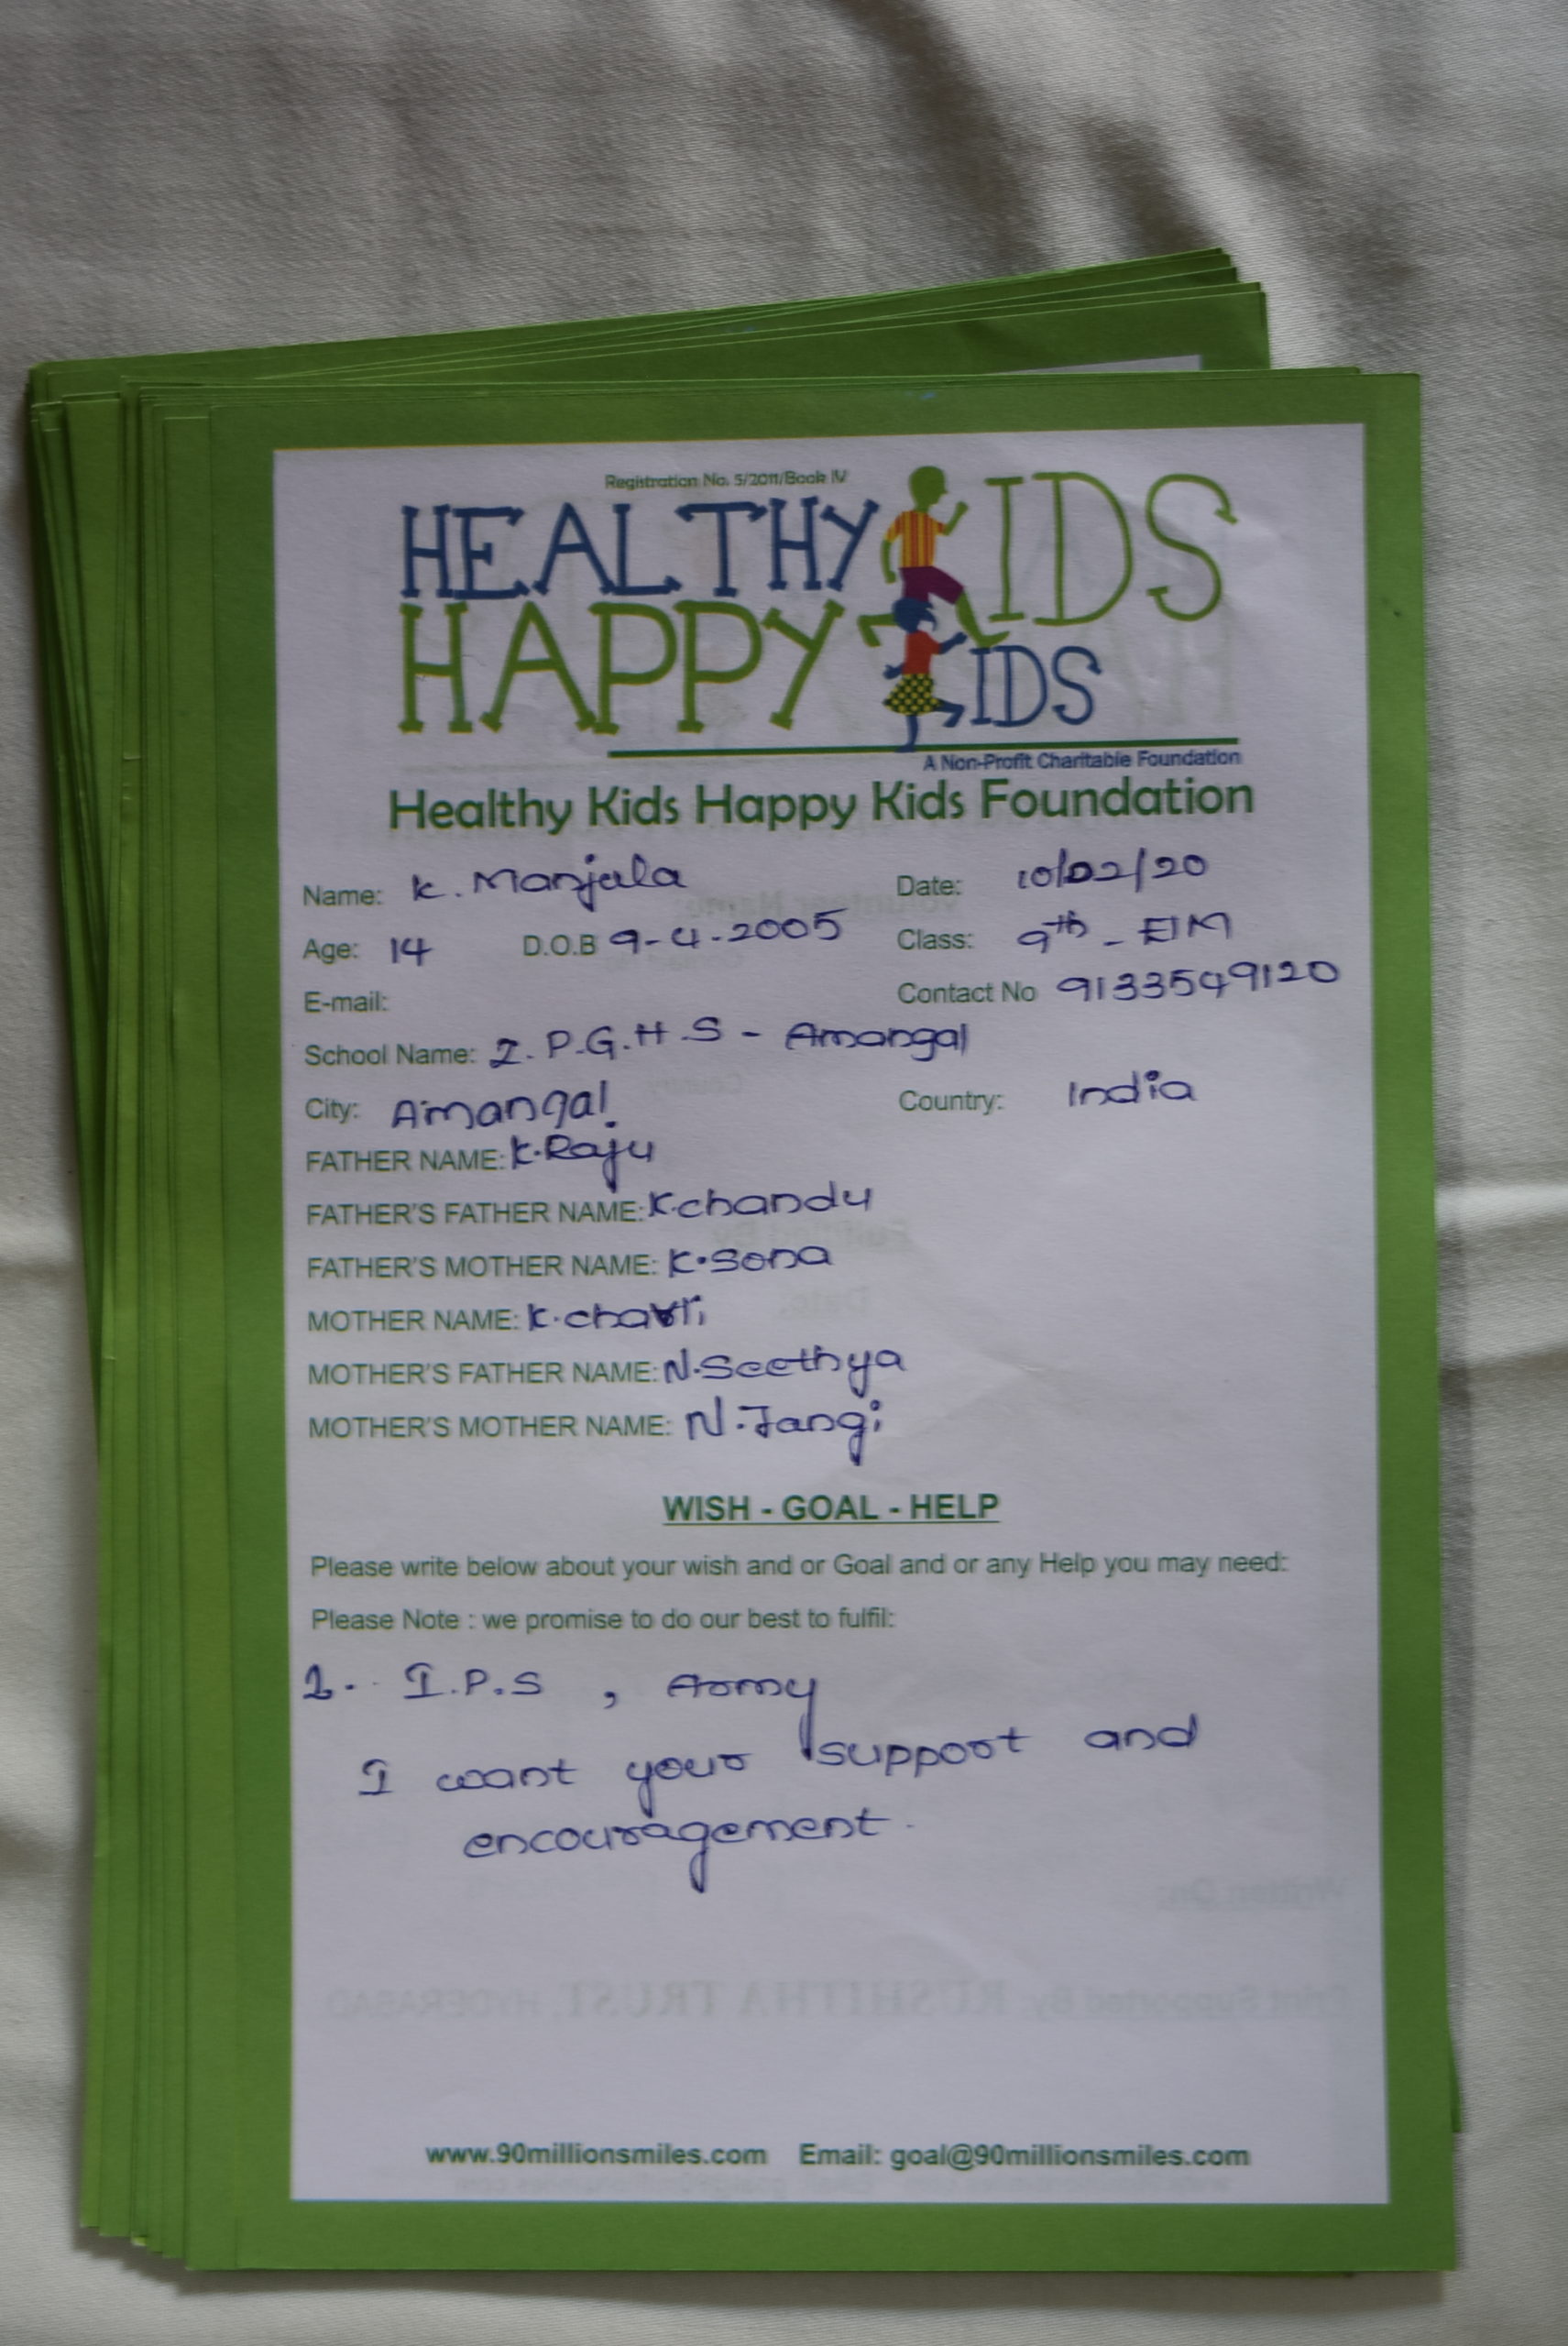 Registration No. 5/2011/Book IV
HEALTHY KIDS
HAPPY KIDS
A Non-Profit Charitable Foundation
Healthy Kids Happy Kids Foundation
Name: K. Manjula Date: 10/02/20
Age: 14 D.O.B 9-4-2005 Class: 9th - E/M
E-mail: Contact No 9133549120
School Name: Z.P.G.H.S - Amangal
City: Amangal Country: India
FATHER NAME: K.Raju
FATHER'S FATHER NAME: K.chandu
FATHER'S MOTHER NAME: K.Sona
MOTHER NAME:
MOTHER'S FATHER NAME: N.Seethya
MOTHER'S MOTHER NAME: N.Jangi
WISH - GOAL - HELP
Please write below about your wish and or Goal and or any Help you may need:
Please Note : we promise to do our best to fulfil:
1. I.P.S , Army
I want your support and
encouragement.
www.90millionsmiles.com Email: goal@90millionsmiles.com